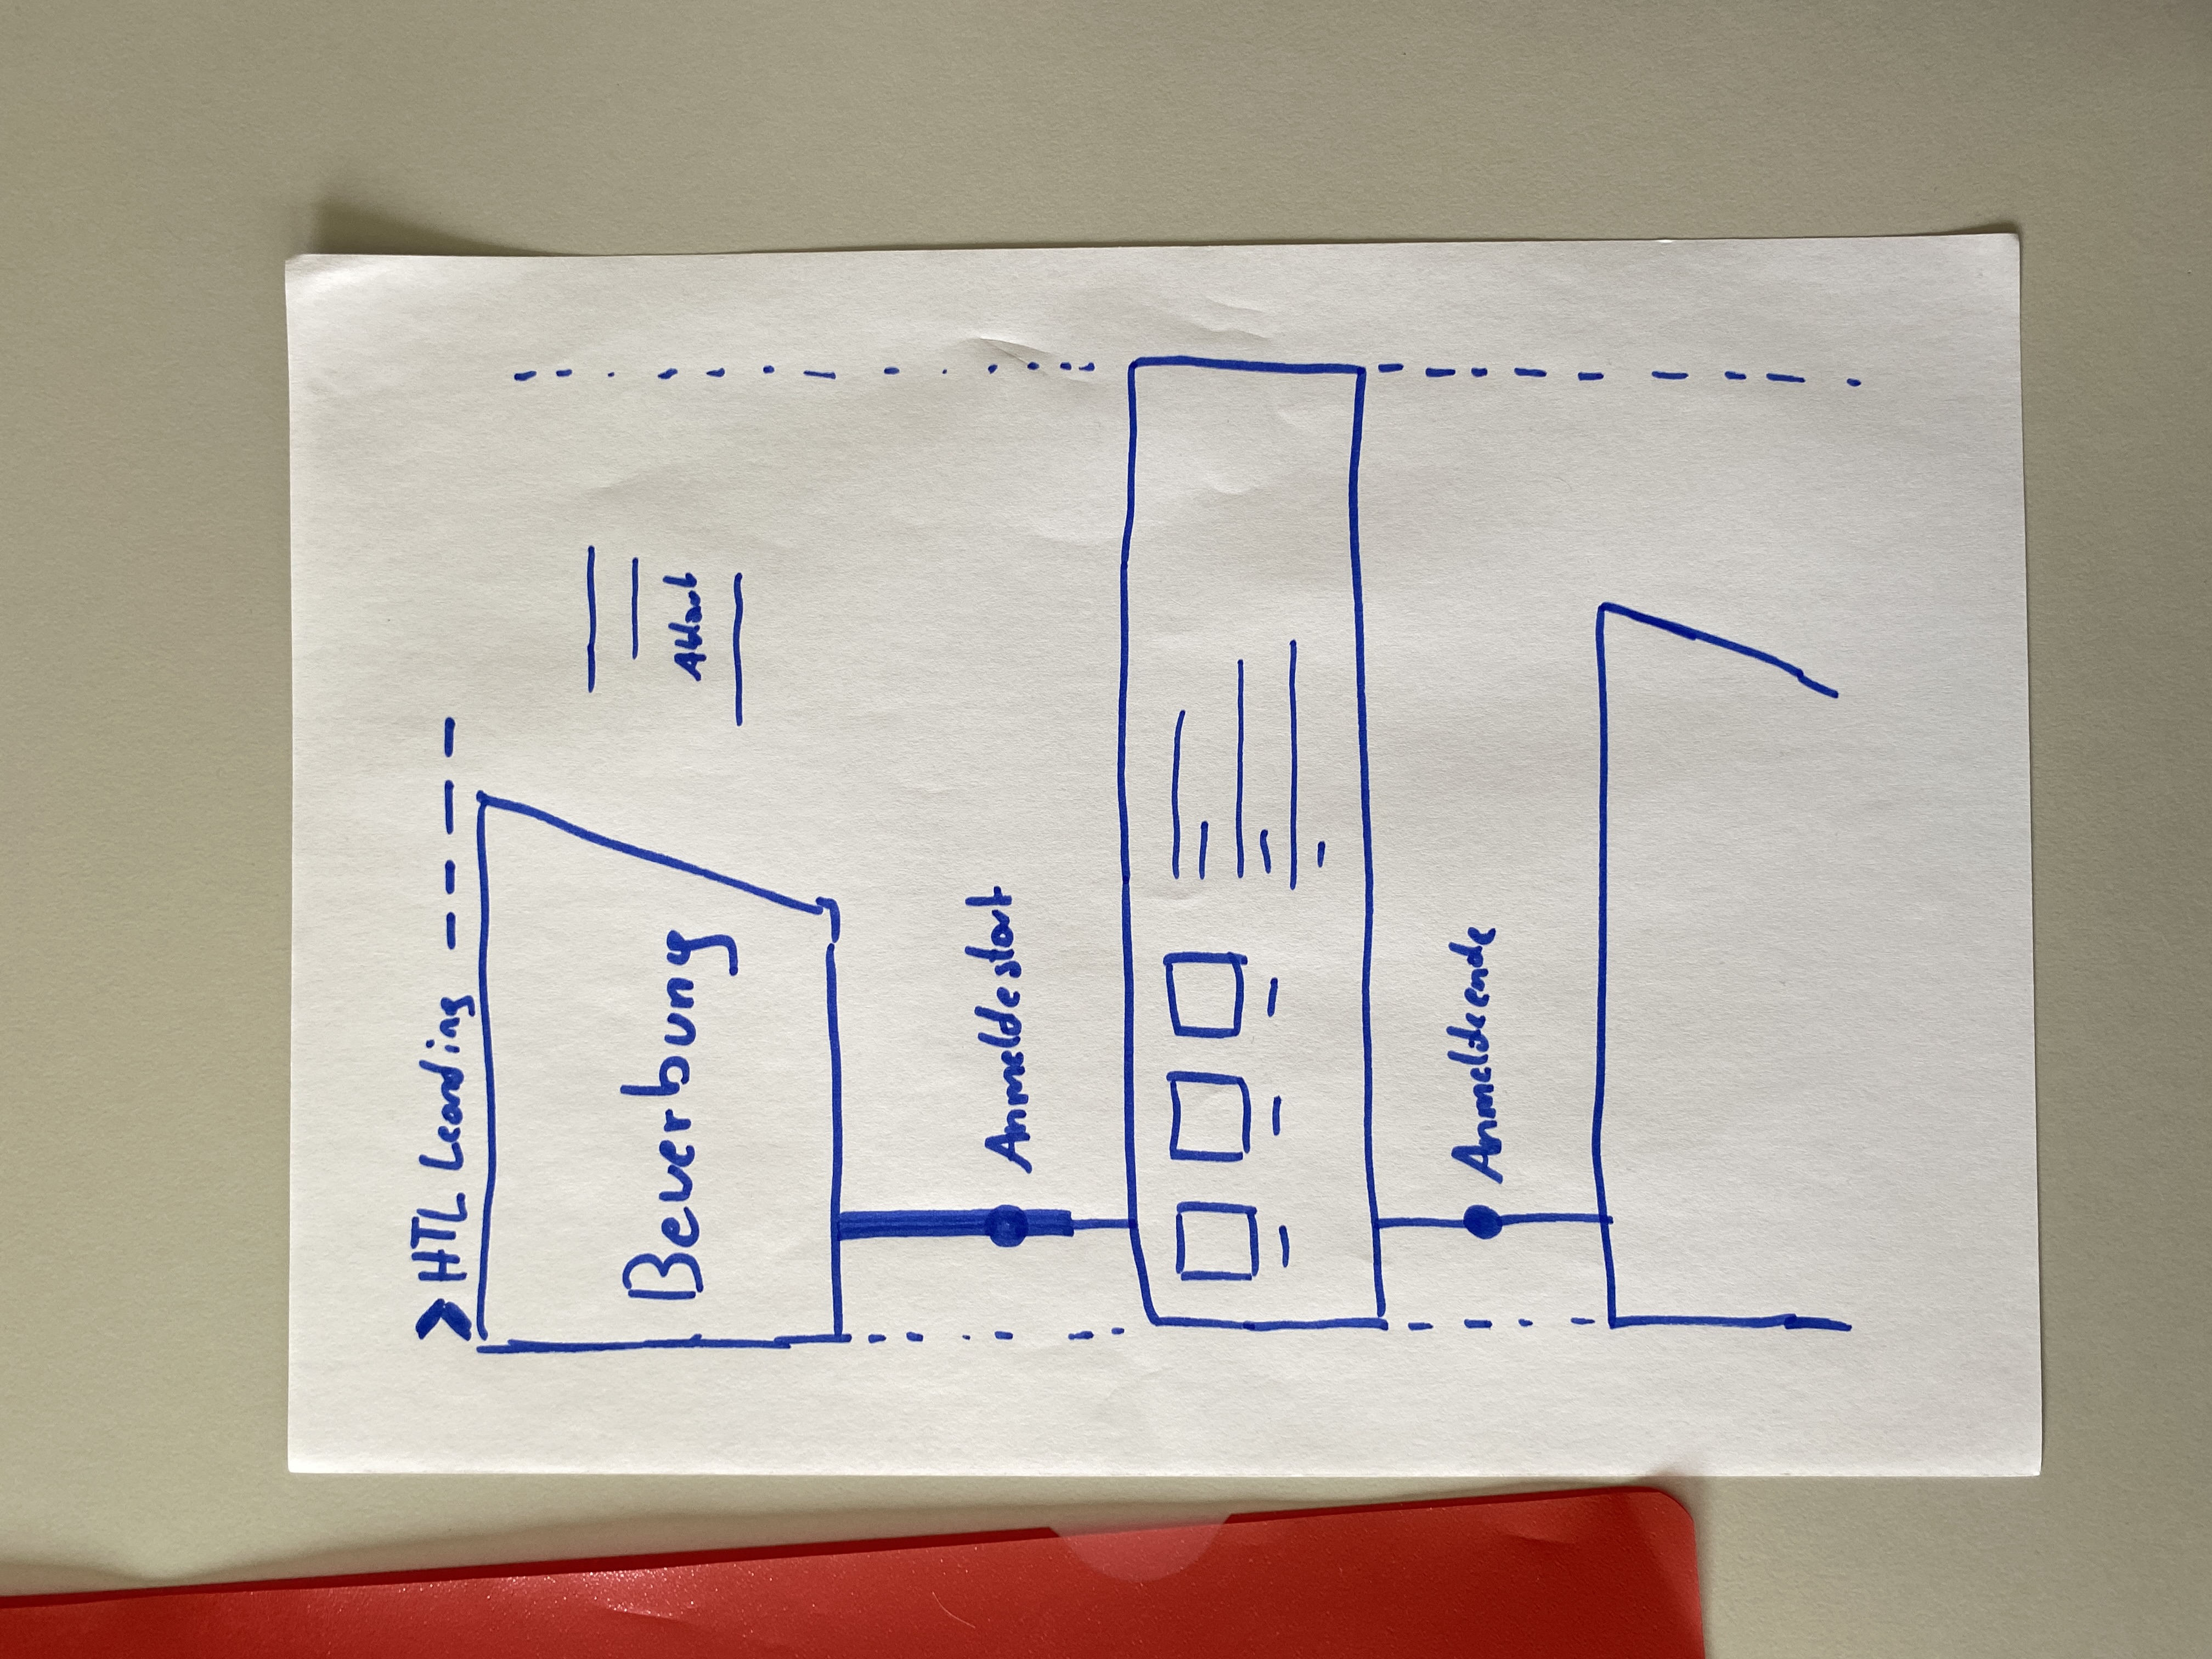 HTL Leonding
Bewerbung
Ablauf
Anmeldestart
Anmeldeende